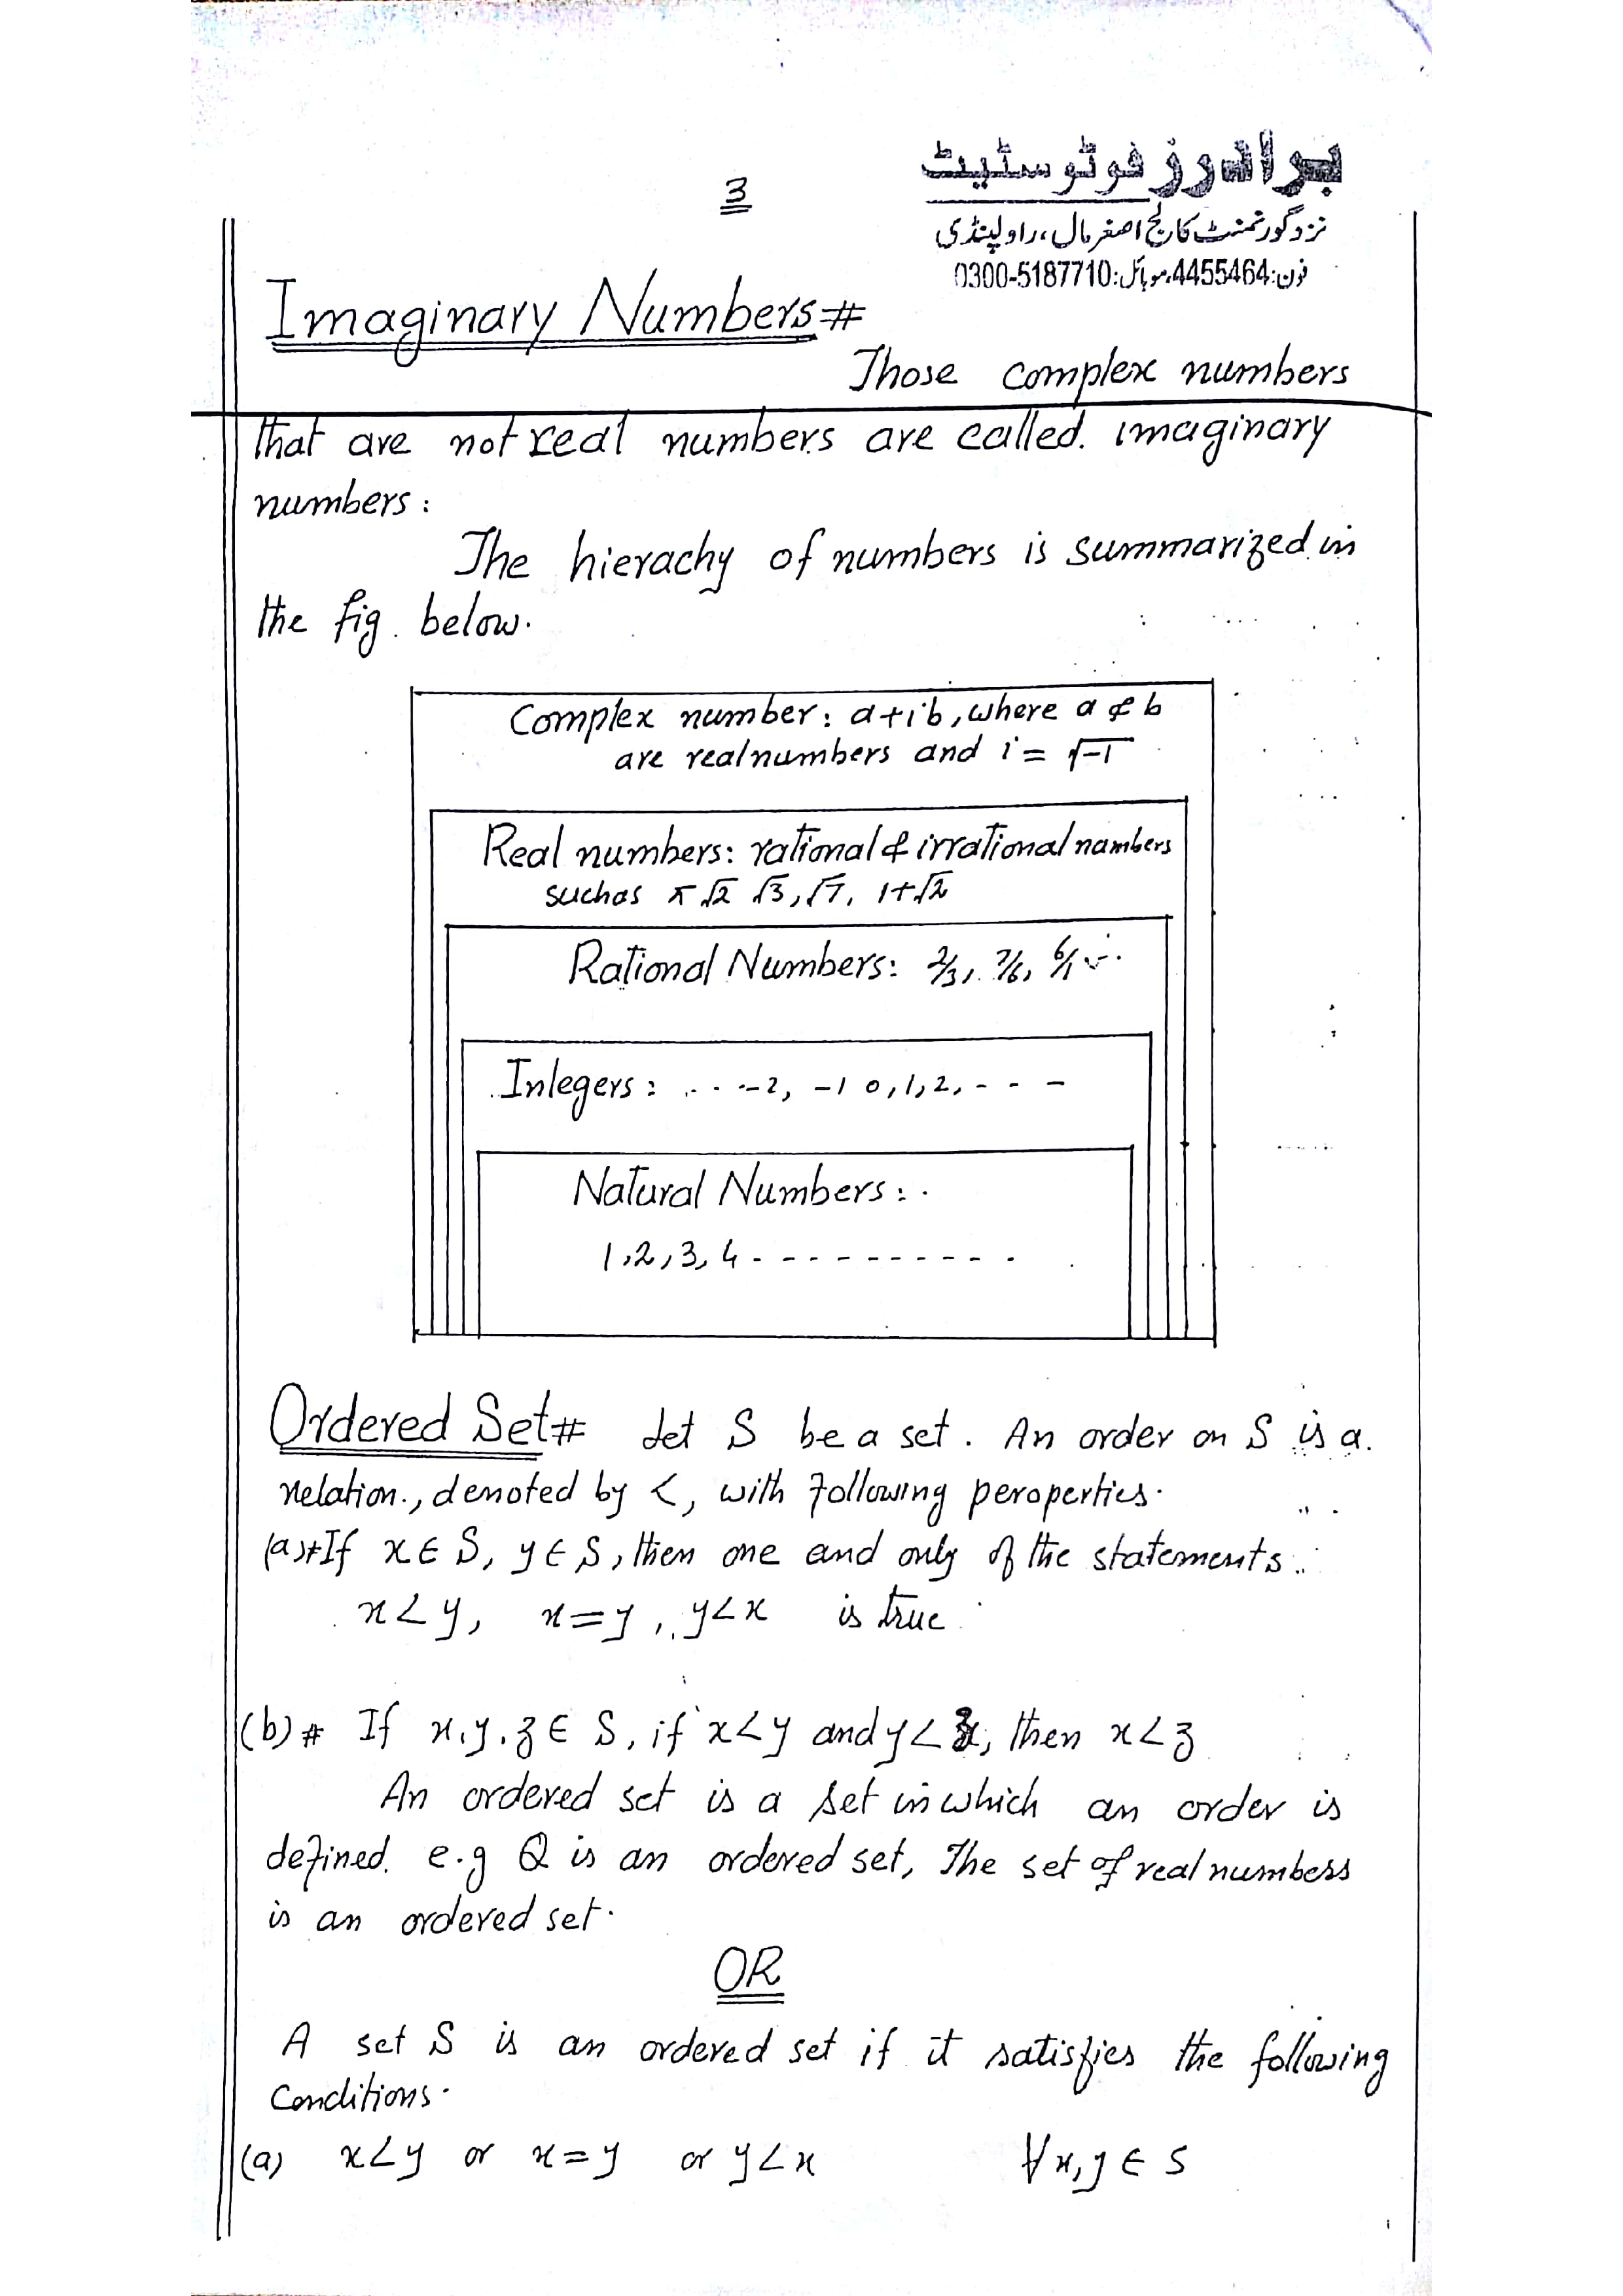 برادرز فوٹوسٹیٹ
3
نزد گورنمنٹ کالج اصغر مال، راولپنڈی
فون:4455464، موبائل:0300-5187710
Imaginary Numbers#
Those complex numbers
that are not real numbers are called. imaginary
numbers:
The hierachy of numbers is summarized in
the fig. below.
Complex number: a+ib, where a & b
are real numbers and i = √-1
Real numbers: rational & irrational numbers
such as π √2 √3, √7, 1+√2
Rational Numbers: 2/3, 7/6, 6/1
Integers: ... -2, -1 0, 1, 2, - - -
Natural Numbers:
1, 2, 3, 4 - - - - - - - - - -
Ordered Set# Let S be a set. An order on S is a
relation, denoted by <, with following peroperties.
(a)# If x ∈ S, y ∈ S, then one and only of the statements
x < y, x = y, y < x is true
(b)# If x, y, z ∈ S, if x < y and y < z, then x < z
An ordered set is a set in which an order is
defined. e.g Q is an ordered set, The set of real numbers
is an ordered set.
OR
A set S is an ordered set if it satisfies the following
Conditions.
(a) x < y or x = y or y < x ∀ x, y ∈ S